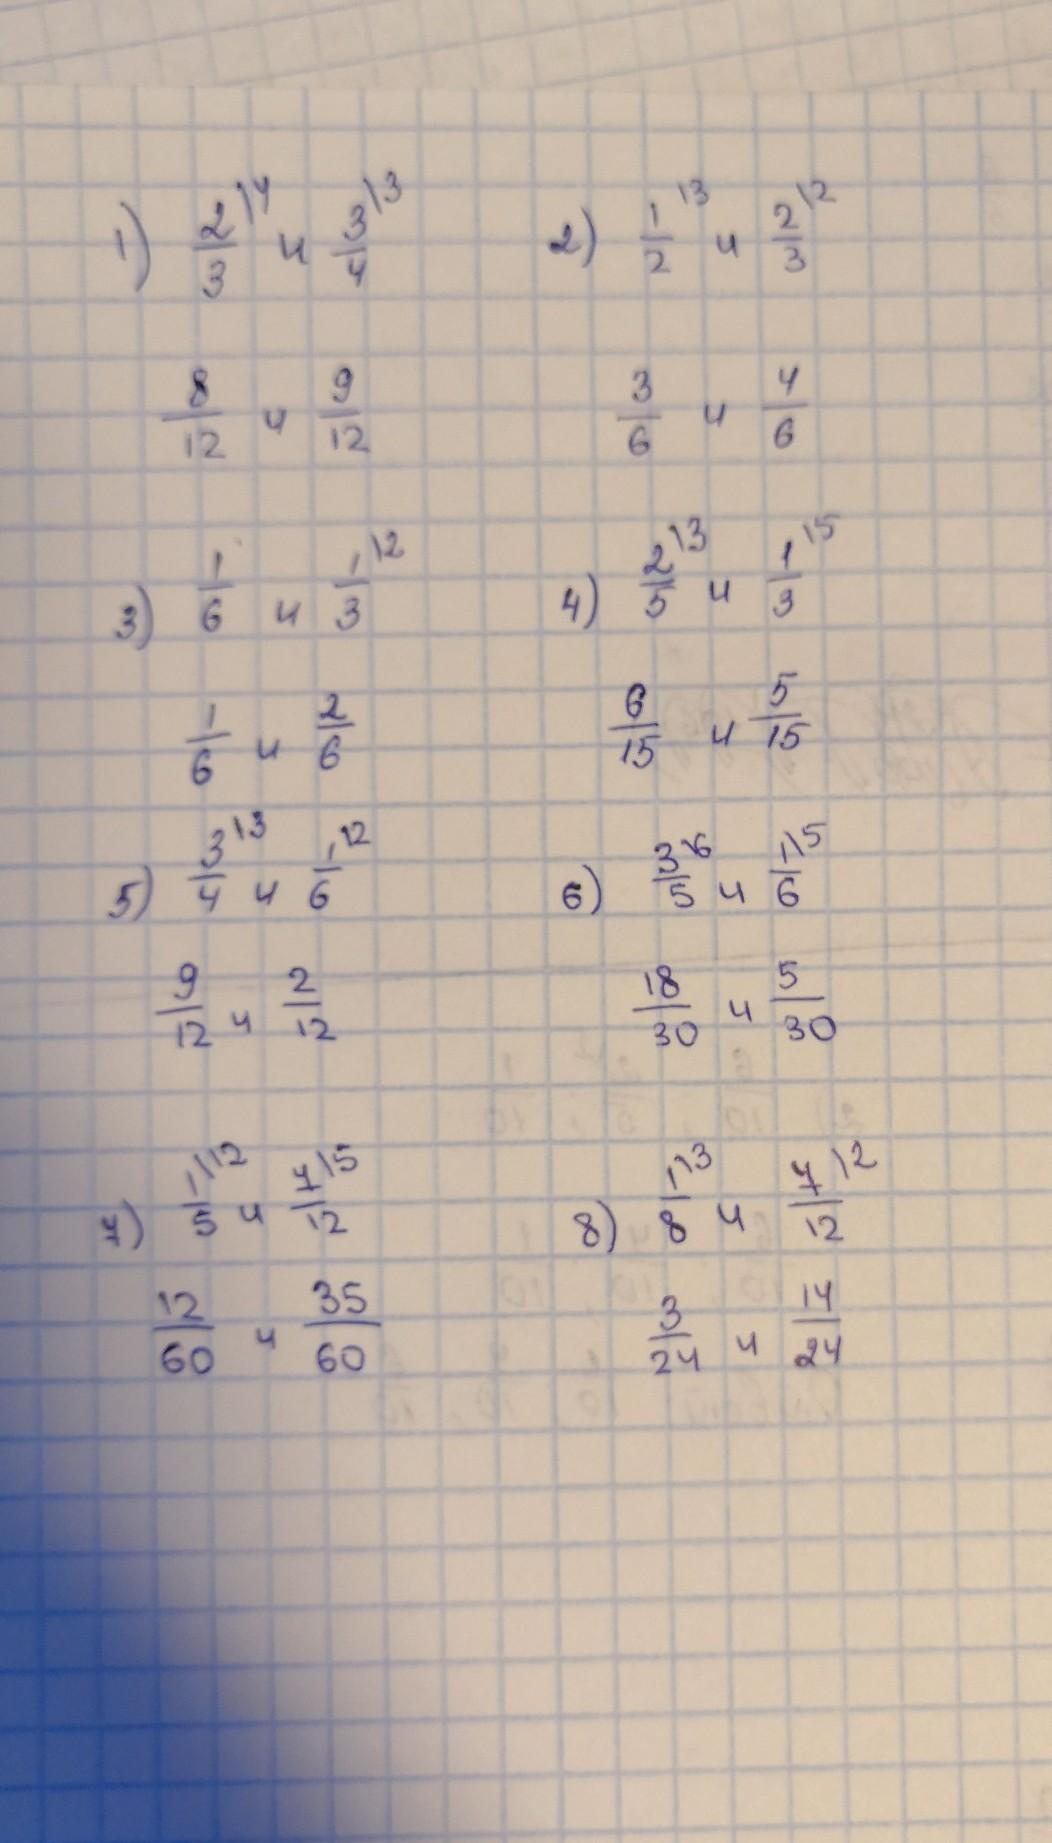 1) 2/3 \4 и 3/4 \3
8/12 и 9/12
2) 1/2 \3 и 2/3 \2
3/6 и 4/6
3) 1/6 и 1/3 \2
1/6 и 2/6
4) 2/5 \3 и 1/3 \5
6/15 и 5/15
5) 3/4 \3 и 1/6 \2
9/12 и 2/12
6) 3/5 \6 и 1/6 \5
18/30 и 5/30
7) 1/5 \12 и 7/12 \5
12/60 и 35/60
8) 1/8 \3 и 7/12 \2
3/24 и 14/24